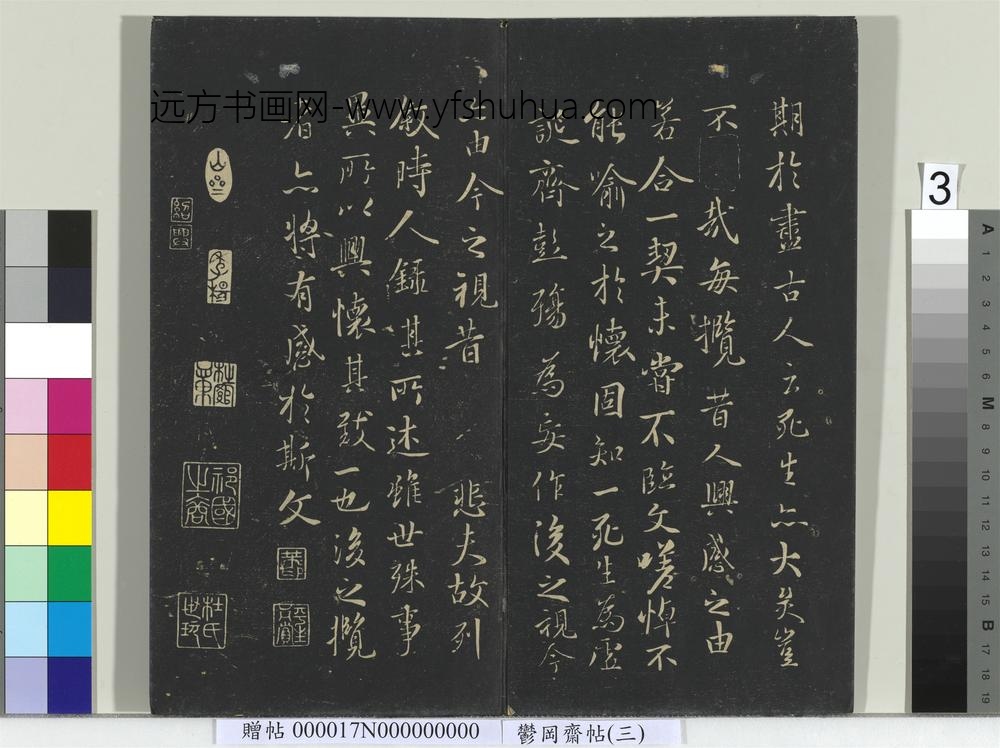 期於盡古人云死生亦大矣豈
不哉每攬昔人興感之由
若合一契未嘗不臨文嗟悼不
能喻之於懷固知一死生為虛
誕齊彭殤為妄作後之視今
亦由今之視昔悲夫故列
敘時人錄其所述雖世殊事
異所以興懷其致一也後之攬
者亦將有感於斯文
紹興
远方书画网-www.yfshuhua.com
贈帖 000017N000000000
鬱岡齋帖(三)
3
A 1 2 3 4 5 6 M 8 9 10 11 12 13 14 15 B 17 18 19